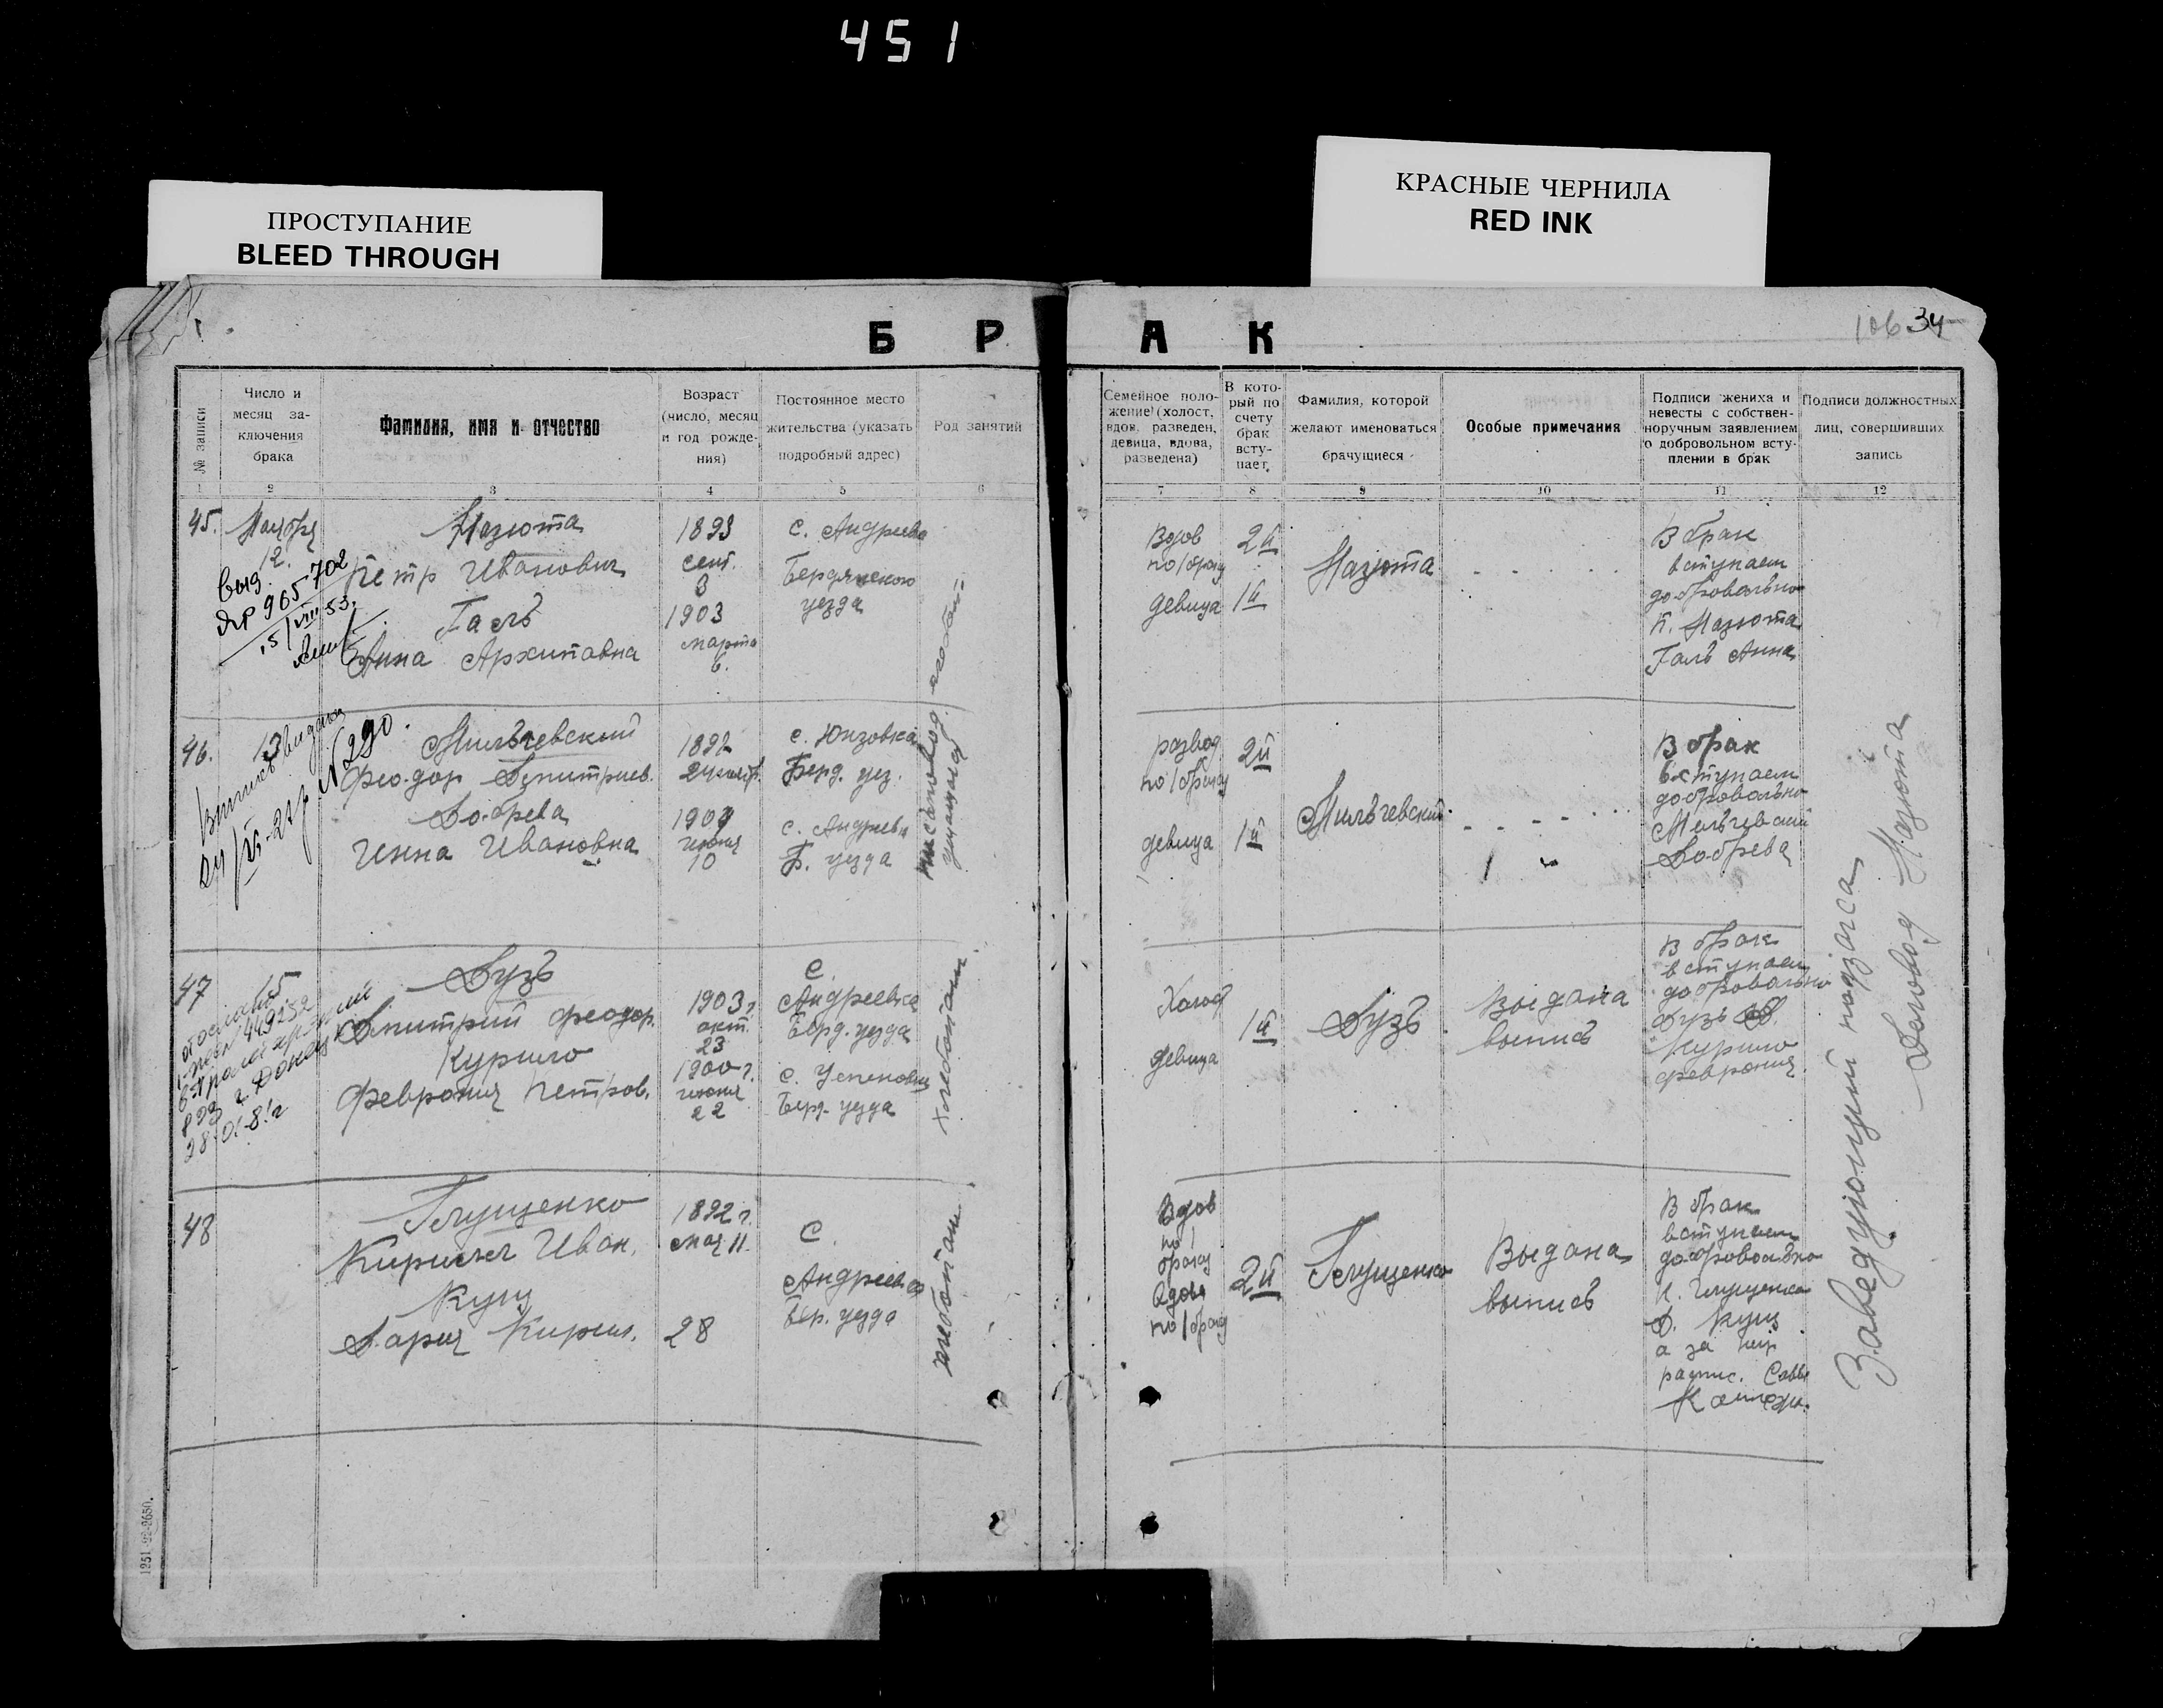 451
ПРОСТУПАНИЕ
BLEED THROUGH
КРАСНЫЕ ЧЕРНИЛА
RED INK
106 34
Б Р А К
№ записи
Число и
месяц за-
ключения
брака
Фамилия, имя и отчество
Возраст
(число, месяц
и год рожде-
ния)
Постоянное место
жительства (указать
подробный адрес)
Род занятий
Семейное поло-
жение (холост,
вдов, разведен,
девица, вдова,
разведена)
В кото-
рый по
счету
брак
всту-
пает
Фамилия, которой
желают именоваться
брачущиеся
Особые примечания
Подписи жениха и
невесты с собствен-
норучным заявлением
о добровольном всту-
плении в брак
Подписи должностных
лиц, совершивших
запись
1 2 3 4 5 6 7 8 9 10 11 12
45.
Ноября
12.
выд.
965702
15/VIII 53.
Мазюта
Петр Иванович
Галь
Анна Архиповна
1893
сент.
8
1903
марта
6.
с. Андреевка
Бердянского
уезда
Вдов
по 1 браку
девица
2й
1й
Мазюта
В брак
вступаем
добровольно
П. Мазюта
Галь Анна
46.
13
выдана
№ 290.
Мильчевский
Феодор Дмитриев.
Добрева
Инна Ивановна
1892
1904
июня
10
с. Юзовка
Берд. уез.
с. Андреевка
Б. уезда
развод
по 1 браку
девица
2й
1й
Мильчевский
В брак
вступаем
добровольно
Мильчевский
Добрева
47
15
449252
28-01-81г
Дузь
Дмитрий Феодор.
Курило
Феврония Петров.
1903 г.
окт.
23
1900 г.
июня
22
с.
Андреевка
Берд. уезда
с. Успеновка
Берд. уезда
хлебопаш.
Холост
девица
1й
Дузь
Выдана
выпись
В брак
вступаем
добровольно
Дузь
Курило
Феврония
48
Глущенко
Кирилл Иван.
Кущ
Дария Кирил.
1892 г.
мая 11.
28
с.
Андреевка
Бер. уезда
хлебопаш.
Вдов
по 1
браку
Вдова
по 1 браку
2й
Глущенко
Выдана
выпись
В брак
вступаем
добровольно
К. Глущенко
Д. Кущ
а за нее
распис. Савва
Заведующий подзагса
Деловод Мазюта
1251-22-2650.